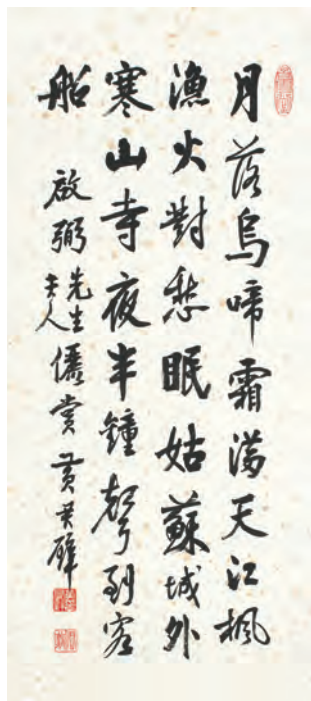 月落烏啼霜满天江楓
漁火對愁眠姑蘇城外
寒山寺夜半鐘聲到客
船
啟弼先生夫人儷賞 黃君璧